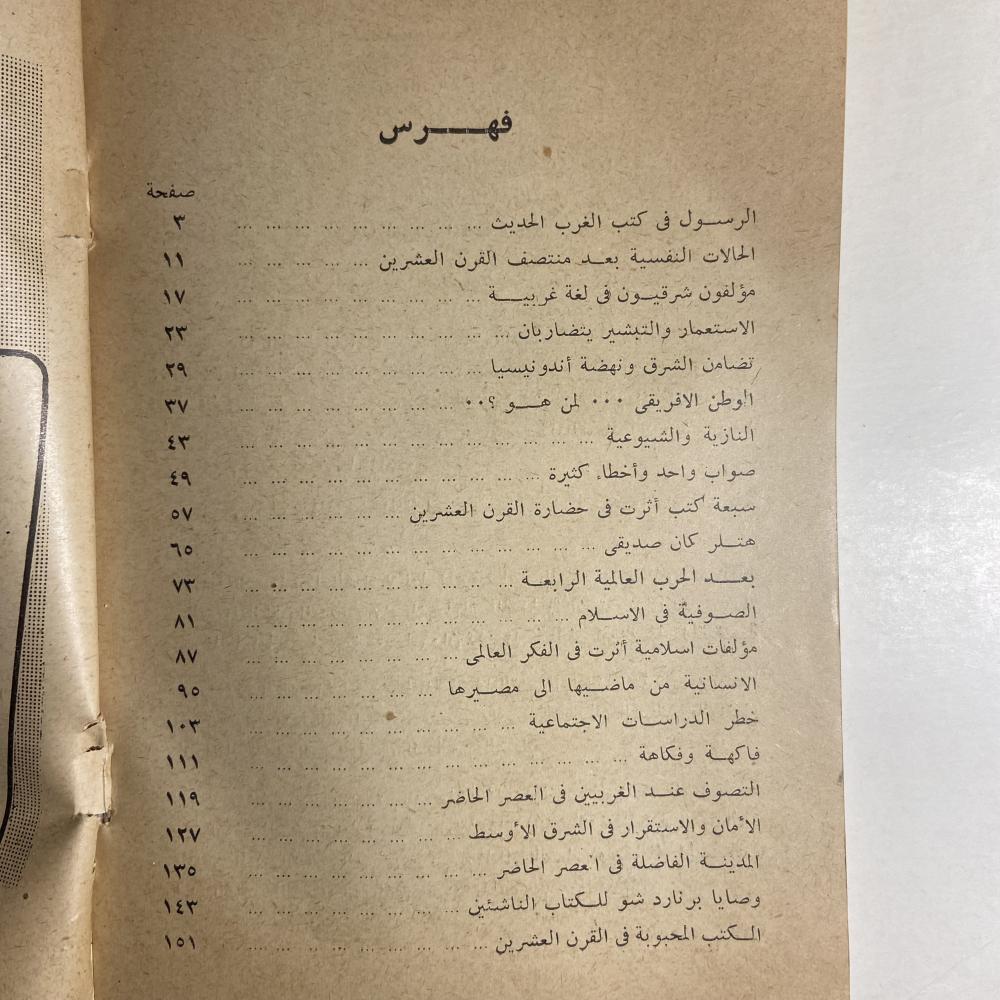 فهرس
صفحة
الرسول فى كتب الغرب الحديث ... ... ... ... ... ... ... ... ... ٣
الحالات النفسية بعد منتصف القرن العشرين ... ... ... ... ... ١١
مؤلفون شرقيون فى لغة غربية ... ... ... ... ... ... ... ... ... ١٧
الاستعمار والتبشير يتضاربان ... ... ... ... ... ... ... ... ... ... ٢٣
تضامن الشرق ونهضة أندونيسيا ... ... ... ... ... ... ... ... ... ٢٩
الوطن الافريقى ٠٠٠ لمن هو ؟٠٠ ... ... ... ... ... ... ... ... ٣٧
النازية والشيوعية ... ... ... ... ... ... ... ... ... ... ... ... ... ٤٣
صواب واحد وأخطاء كثيرة ... ... ... ... ... ... ... ... ... ... ... ٤٩
سبعة كتب أثرت فى حضارة القرن العشرين ... ... ... ... ... ... ٥٧
هتلر كان صديقى ... ... ... ... ... ... ... ... ... ... ... ... ... ٦٥
بعد الحرب العالمية الرابعة ... ... ... ... ... ... ... ... ... ... ٧٣
الصوفية فى الاسلام ... ... ... ... ... ... ... ... ... ... ... ... ٨١
مؤلفات اسلامية أثرت فى الفكر العالمى ... ... ... ... ... ... ... ... ٨٧
الانسانية من ماضيها الى مصيرها ... ... ... ... ... ... ... ٩٥
خطر الدراسات الاجتماعية ... ... ... ... ... ... ... ... ... ... ... ١٠٣
فاكهة وفكاهة ... ... ... ... ... ... ... ... ... ... ... ... ... ... ١١١
التصوف عند الغربيين فى العصر الحاضر ... ... ... ... ... ... ... ١١٩
الأمان والاستقرار فى الشرق الأوسط ... ... ... ... ... ... ... ... ١٢٧
المدينة الفاضلة فى العصر الحاضر ... ... ... ... ... ... ... ... ... ١٣٥
وصايا برنارد شو للكتاب الناشئين ... ... ... ... ... ... ... ... ١٤٣
الكتب المحبوبة فى القرن العشرين ... ... ... ... ... ... ... ... ... ١٥١